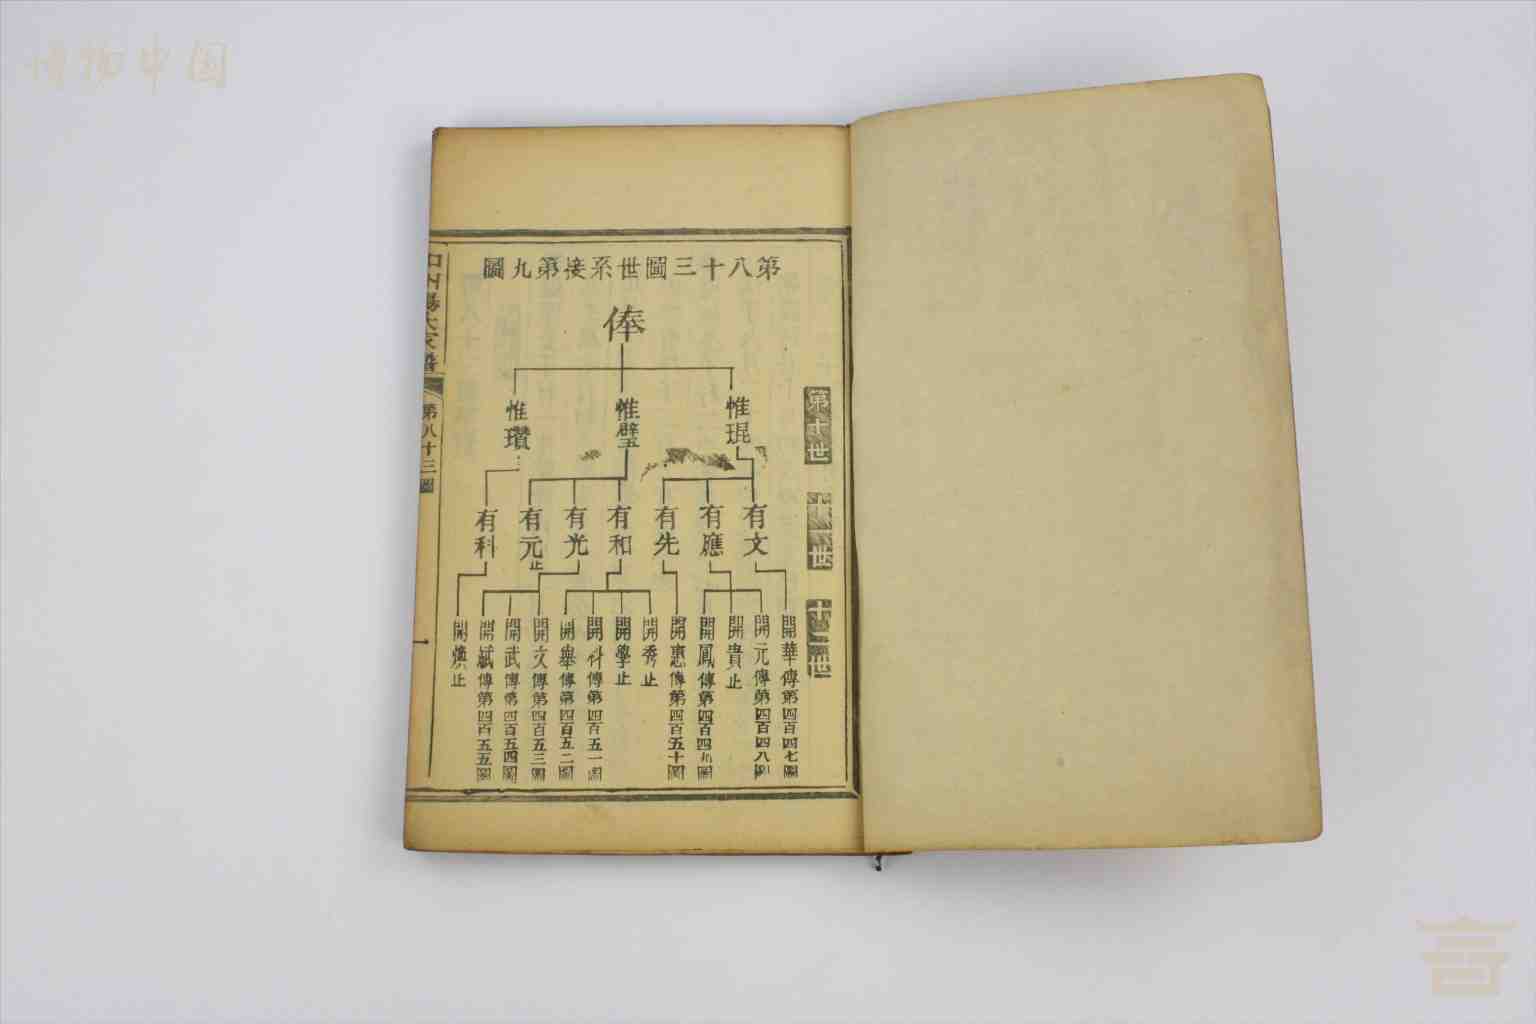 博物中国
第八十三圖世系接第九圖
俸
第十世
惟琨
惟璧
惟瓚
十一世
有文
有應
有先
有和
有光
有元止
有科
十二世
開華傳第四百四七圖
開元傳第四百四八圖
開貴止
開鳳傳第四百四九圖
開惠傳第四百五十圖
開秀止
開學止
開科傳第四百五一圖
開舉傳第四百五二圖
開文傳第四百五三圖
開武傳第四百五四圖
開斌傳第四百五五圖
開煥止
第八十三圖
一